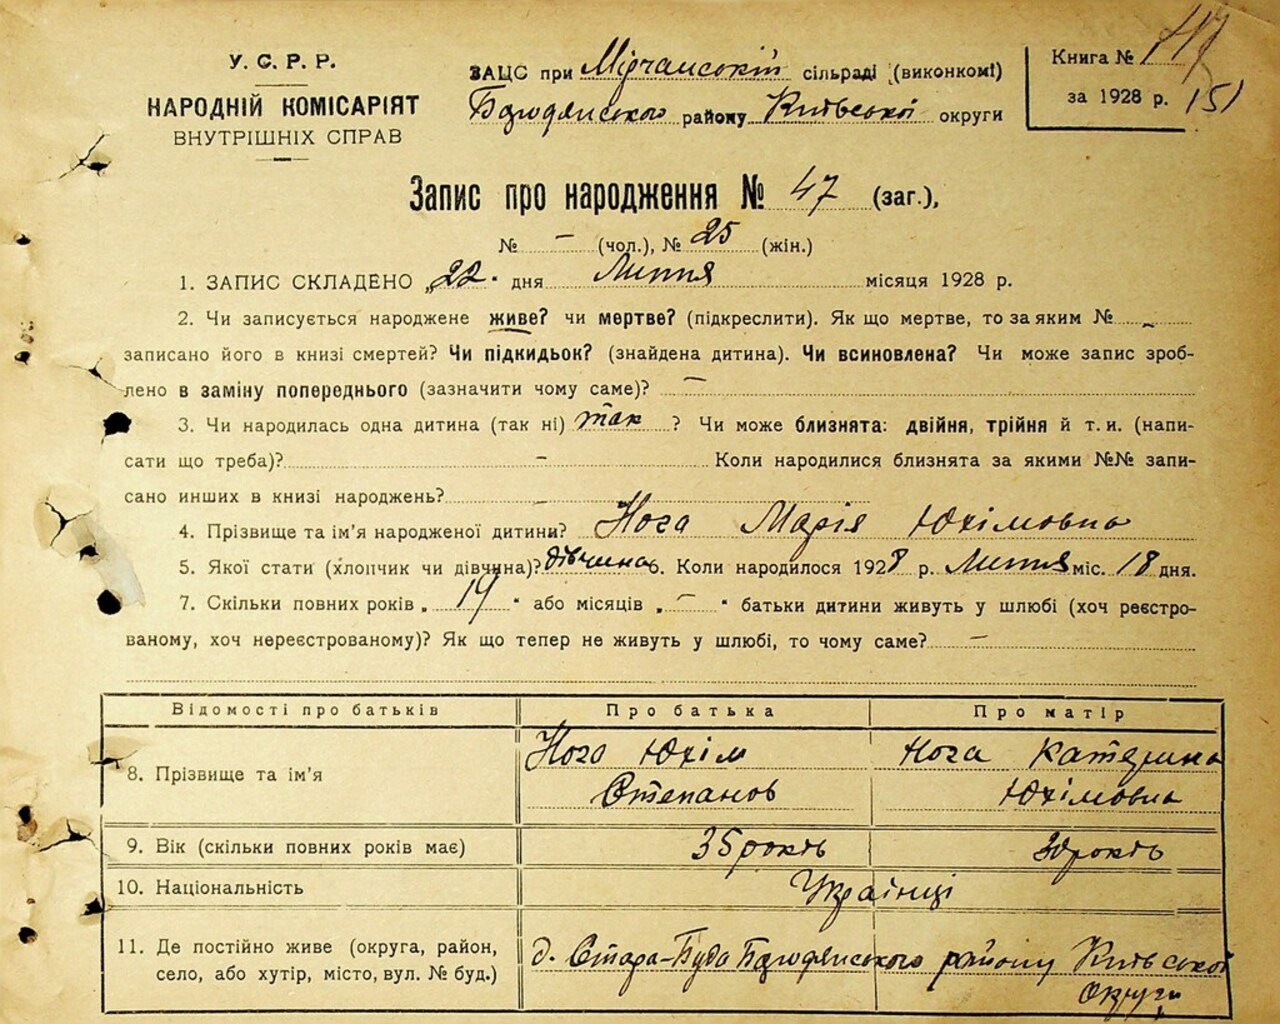 У. С. Р. Р.
НАРОДНІЙ КОМІСАРІЯТ
ВНУТРІШНІХ СПРАВ
ЗАЦС при Мірчанській сільраді (виконкомі)
Бородянського району Київської округи
Книга № 117
за 1928 р. 151
Запис про народження № 47 (заг.),
№ – (чол.), № 25 (жін.)
1. ЗАПИС СКЛАДЕНО „22" дня Липня місяця 1928 р.
2. Чи записується народжене живе? чи мертве? (підкреслити). Як що мертве, то за яким № –
записано його в книзі смертей? Чи підкидьок? (знайдена дитина). Чи всиновлена? Чи може запис зроб-
лено в заміну попереднього (зазначити чому саме)? –
3. Чи народилась одна дитина (так ні) так ? Чи може близнята: двійня, трійня й т. и. (напи-
сати що треба)? – Коли народилися близнята за якими №№ запи-
сано инших в книзі народжень? –
4. Прізвище та ім'я народженої дитини? Нога Марія Юхімовна
5. Якої стати (хлопчик чи дівчина)? дівчина 6. Коли народилося 1928 р. Липня міс. 18 дня.
7. Скільки повних років „ 19 " або місяців „ – " батьки дитини живуть у шлюбі (хоч реєстро-
ваному, хоч нереєстрованому)? Як що тепер не живуть у шлюбі, то чому саме? –
Відомості про батьків Про батька Про матір
8. Прізвище та ім'я Нога Юхім Степанов Нога Катерина Юхімовна
9. Вік (скільки повних років має) 35 років 30 років
10. Національність Українці
11. Де постійно живе (округа, район,
село, або хутір, місто, вул. № буд.) д. Стара-Буда Бородянського району Київської
округи